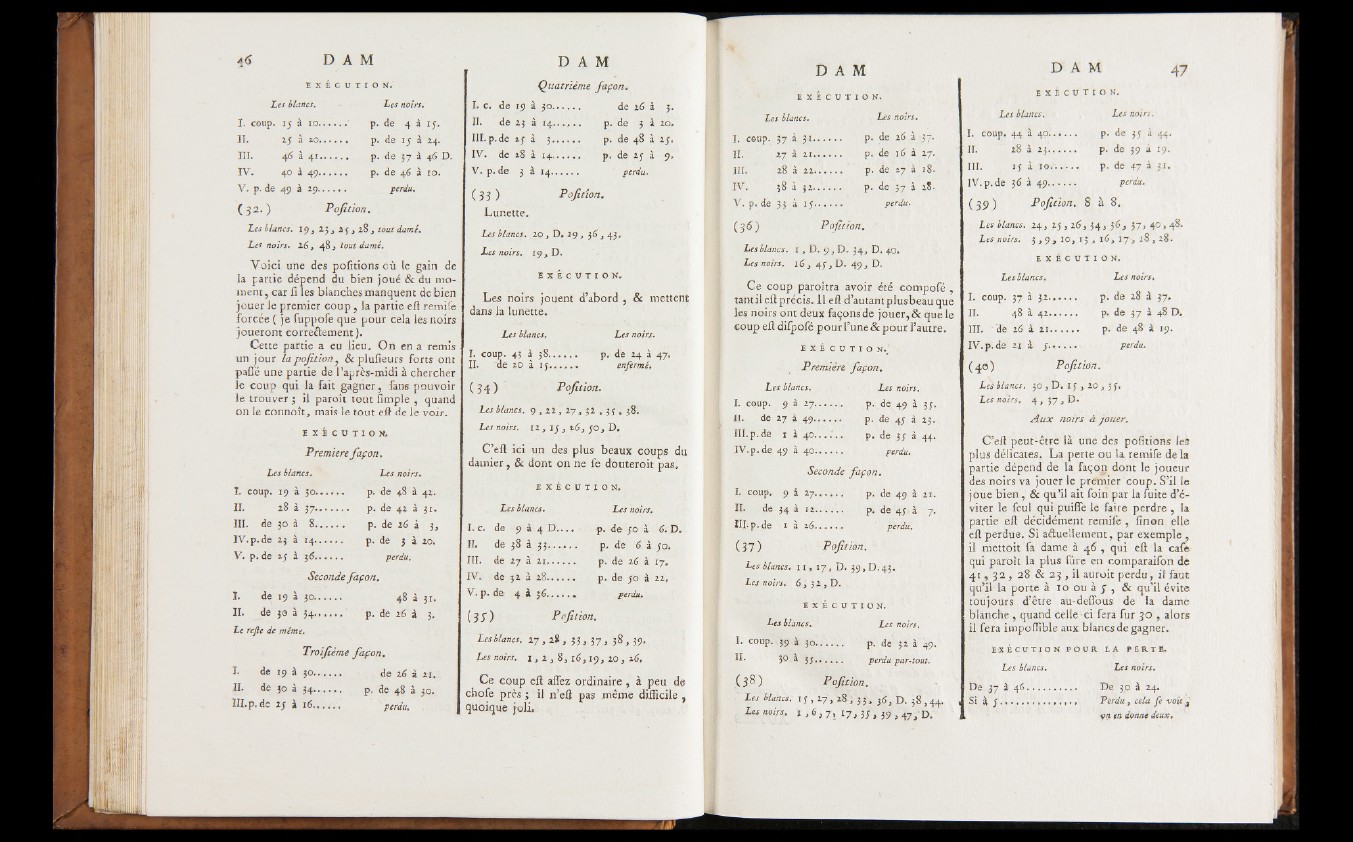 46 D A M
EXÉCUTION.
Les blancs. Les noirs.
I. coup. 15 à 10...... p. de 4 à 15.
II. 25 à 20...... p. de 15 à 24.
III. 46 à 41...... p. de 37 à 46 D.
IV. 40 à 49...... p. de 46 à 10.
V. p. de 49 à 29...... perdu.
(32.) Poſition.
Les blancs. 19, 23, 25, 28, tout damé.
Les noirs. 26, 48, tout damé.
Voici une des poſitions où le gain de
la partie dépend du bien joué & du mo-
ment, car ſi les blanches manquent de bien
jouer le premier coup, la partie eſt remiſe
forcée ( je ſuppoſe que pour cela les noirs
joueront correctement).
Cette partie a eu lieu. On en a remis
un jour la poſition, & pluſieurs forts ont
paſſé une partie de l'après-midi à chercher
le coup qui la fait gagner, ſans pouvoir
le trouver; il paroît tout ſimple, quand
on le connoît, mais le tout eſt de le voir.
EXÉCUTION.
Premiere façon.
Les blancs. Les noirs.
I. coup. 19 à 30...... p. de 48 à 42.
II. 28 à 37...... p. de 42 à 31.
III. de 30 à 8...... p. de 26 à 3,
IV. p. de 23 à 14...... p. de 3 à 20.
V. p. de 25 à 36...... perdu.
Seconde façon.
I. de 19 à 30...... 48 à 31.
II. de 30 à 34...... p. de 26 à 3.
Le reſte de même.
Troiſième façon.
I. de 19 à 30...... de 26 à 21.
II. de 30 à 34...... p. de 48 à 30.
III. p. de 25 à 16...... perdu.
D A M
Quatrième façon.
I. c. de 19 à 30...... de 26 à 3.
II. de 23 à 14...... p. de 3 à 20.
III. p. de 25 à 3...... p. de 48 à 25.
IV. de 28 à 14...... p. de 25 à 9.
V. p. de 3 à 14...... perdu.
(33) Poſition.
Lunette.
Les blancs. 20, D. 29, 36, 43.
Les noirs. 19, D.
EXÉCUTION.
Les noirs jouent d'abord, & mettent
dans la lunette.
Les blancs. Les noirs.
I. coup. 43 à 38...... p. de 24 à 47.
II. de 20 à 15...... enfermé.
(34) Poſition.
Les blancs. 9, 22, 27, 32, 35, 38.
Les noirs. 12, 15, 26, 50, D.
C'eſt ici un des plus beaux coups du
damier, & dont on ne ſe douteroit pas.
EXÉCUTION.
Les blancs. Les noirs.
I. c. de 9 à 4 D.... p. de 50 à 6. D.
II. de 38 à 33...... p. de 6 à 50.
III. de 27 à 21...... p. de 26 à 17.
IV. de 32 à 28...... p. de 50 à 22,
V. p. de 4 à 36...... perdu.
(35) Poſition.
Les blancs. 27, 28, 33, 37, 38, 39.
Les noirs. 1, 2, 8, 16, 19, 20, 26.
Ce coup eſt aſſez ordinaire, à peu de
choſe près; il n'eſt pas même difficile,
quoique joli.
D A M
EXÉCUTION.
Les blancs. Les noirs.
I. coup. 37 à 31...... p. de 26 à 37.
II. 27 à 21...... p. de 16 à 27.
III. 28 à 22...... p. de 27 à 18.
IV. 38 à 32...... p. de 37 à 28.
V. p. de 33 à 15...... perdu.
(36) Poſition.
Les blancs. 1, D. 9, D. 34, D. 40.
Les noirs. 16, 45, D. 49, D.
Ce coup paroîtra avoir été compoſé,
tant il eſt précis. Il eſt d'autant plus beau que
les noirs ont deux façons de jouer, & que le
coup eſt diſpoſé pour l'une & pour l'autre.
EXÉCUTION.
Première façon.
Les blancs. Les noirs.
I. coup. 9 à 27...... p. de 49 à 35.
II. de 27 à 49...... p. de 45 à 23.
III. p. de 1 à 40...... p. de 35 à 44.
IV. p. de 49 à 40...... perdu.
Seconde façon.
I. coup. 9 à 27...... p. de 49 à 21.
II. de 34 à 12...... p. de 45 à 7.
III. p. de 1 à 26...... perdu.
(37) Poſition.
Les blancs. 11, 17, D. 39, D. 43.
Les noirs. 6, 32, D.
EXÉCUTION.
Les blancs. Les noirs.
I. coup. 39 à 30...... p. de 32 à 49.
II. 30 à 35...... perdu par-tout.
(38) Poſition.
Les blancs. 15, 27, 28, 33, 36, D. 38, 44.
Les noirs. 1, 6, 7, 17, 35, 39, 47, D.
D A M 47
EXÉCUTION.
Les blancs. Les noirs.
I. coup. 44 à 40...... p. de 35 à 44.
II. 28 à 23...... p. de 39 à 19.
III. 15 à 10...... p. de 47 à 31.
IV. p. de 36 à 49...... perdu.
(39) Poſition. 8 à 8.
Les blancs. 24, 25, 26, 34, 36, 37, 40, 48.
Les noirs. 3, 9, 10, 13, 16, 17, 18, 28.
EXÉCUTION.
Les blancs. Les noirs.
I. coup. 37 à 32...... p. de 28 à 37.
II. 48 à 42...... p. de 37 à 48 D.
III. de 26 à 21...... p. de 48 à 19.
IV. p. de 21 à 5...... perdu.
(40) Poſition.
Les blancs. 30, D. 15, 20, 35.
Les noirs. 4, 37, D.
Aux noirs à jouer.
C'eſt peut-être là une des poſitions les
plus délicates. La perte ou la remiſe de la
partie dépend de la façon dont le joueur
des noirs va jouer le premier coup. S'il le
joue bien, & qu'il ait ſoin par la ſuite d'é-
viter le ſeul qui puiſſe le faire perdre, la
partie eſt décidément remiſe, ſinon elle
eſt perdue. Si actuellement, par exemple,
il mettoit ſa dame à 46, qui eſt la caſe
qui paroît la plus ſûre en comparaiſon de
41, 32, 28 & 23, il auroit perdu, il faut
qu'il la porte à 10 ou à 5, & qu'il évite
toujours d'être au-deſſous de la dame
blanche, quand celle-ci ſera ſur 30, alors
il ſera impoſſible aux blancs de gagner.
EXÉCUTION POUR LA PERTE.
Les blancs. Les noirs.
De 37 à 46.......... De 30 à 24.
Si à 5.............. Perdu, cela ſe voit,
on en donne deux.